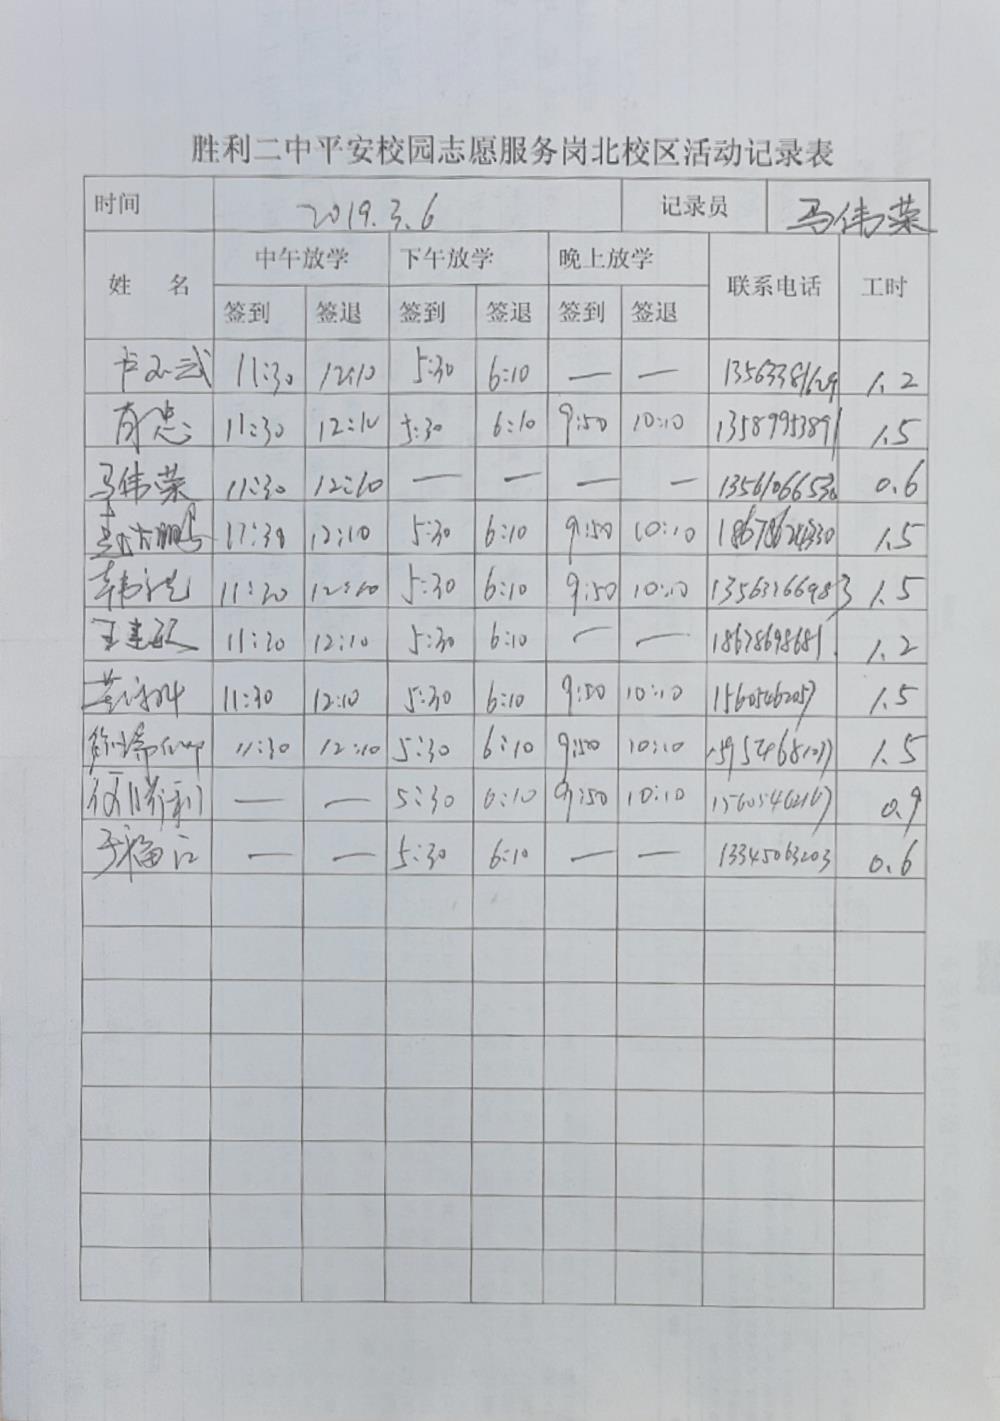 胜利二中平安校园志愿服务岗北校区活动记录表
时间 2019.3.6 记录员 马伟荣
姓 名 中午放学 下午放学 晚上放学 联系电话 工时
签到 签退 签到 签退 签到 签退
11:30 12:10 5:30 6:10 — — 13563381629 1.2
11:30 12:10 5:30 6:10 9:50 10:10 13589953891 1.5
马伟荣 11:30 12:10 — — — — 13561066530 0.6
12:10 5:30 6:10 9:50 10:10 18678624330 1.5
11:30 12:10 5:30 6:10 9:50 10:10 13563166983 1.5
11:30 12:10 5:30 6:10 — — 18678698681 1.2
11:30 12:10 5:30 6:10 9:50 10:10 15605462057 1.5
11:30 12:10 5:30 6:10 9:50 10:10 1.5
— — 5:30 6:10 9:50 10:10 15605462167 0.9
于福江 — — 5:30 6:10 — — 13345063203 0.6